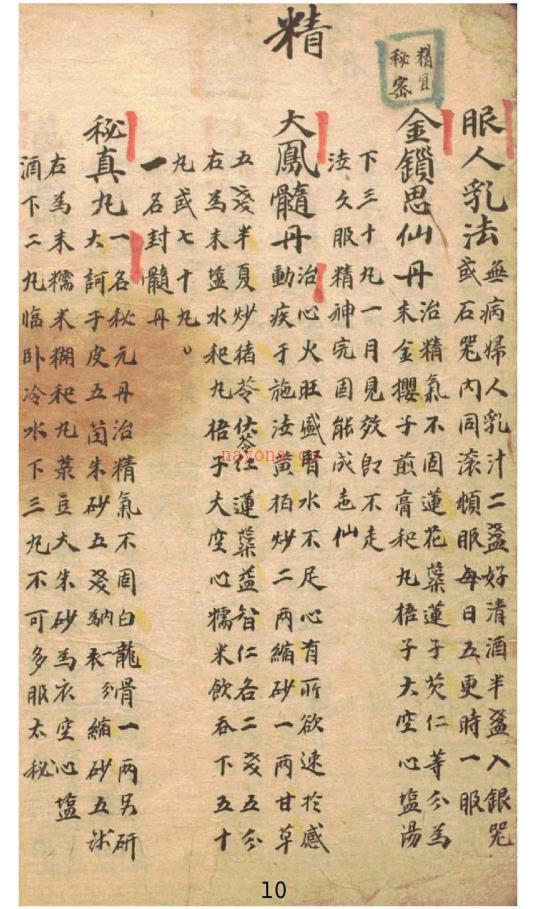 精
精宜
秘密
服人乳法
無病婦人乳汁二盞好清酒半盞入銀器
或石器內同滚頓服每日五更時一服
金鎖思仙丹
治精氣不固蓮花蕊蓮子芡仁等分為
末金櫻子煎膏和丸梧子大空心塩湯
下三十丸一月見效即不走
泄久服精神完固能成地仙
大鳳髓丹
治心火旺盛腎水不足心有所欲速於感
動疾于施泄黃柏炒二兩縮砂一兩甘草
五戔半夏炒猪苓茯苓紅蓮蕊益智仁各二戔五分
右為末塩水和丸梧子大空心糯米飲吞下五十
丸或七十丸。
一名封髓丹
秘真丸
一名秘元丹治精氣不固白龍骨一兩另研
大訶子皮五箇朱砂五戔衣一分縮砂五
右為末糯米糊和丸菉豆大朱砂為衣空心塩
酒下二丸临卧冷水下三丸不可多服太秘
nayona.cn
10